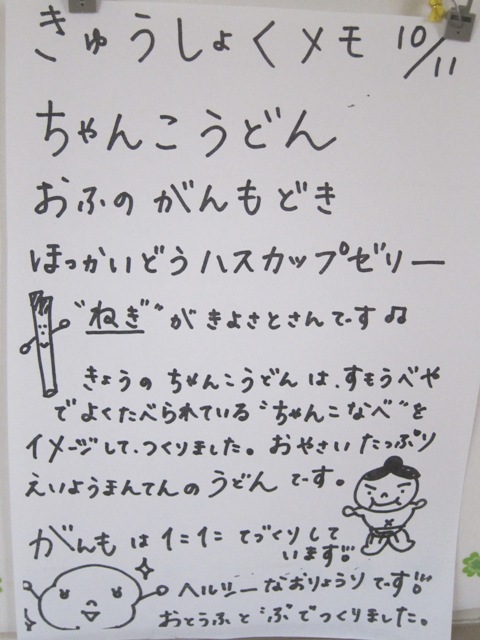 きゅうしょくメモ 10/11
ちゃんこうどん
おふのがんもどき
ほっかいどうハスカップゼリー
"ねぎ"がきよさとさんです♫
きょうのちゃんこうどんは、すもうべや
でよくたべられている"ちゃんこなべ"を
イメージして、つくりました。おやさいたっぷり
えいようまんてんのうどんです。
がんもは1こ1こてづくりして
います!!
ヘルシーなおりょうりです!!
おとうふと"ふ"でつくりました。